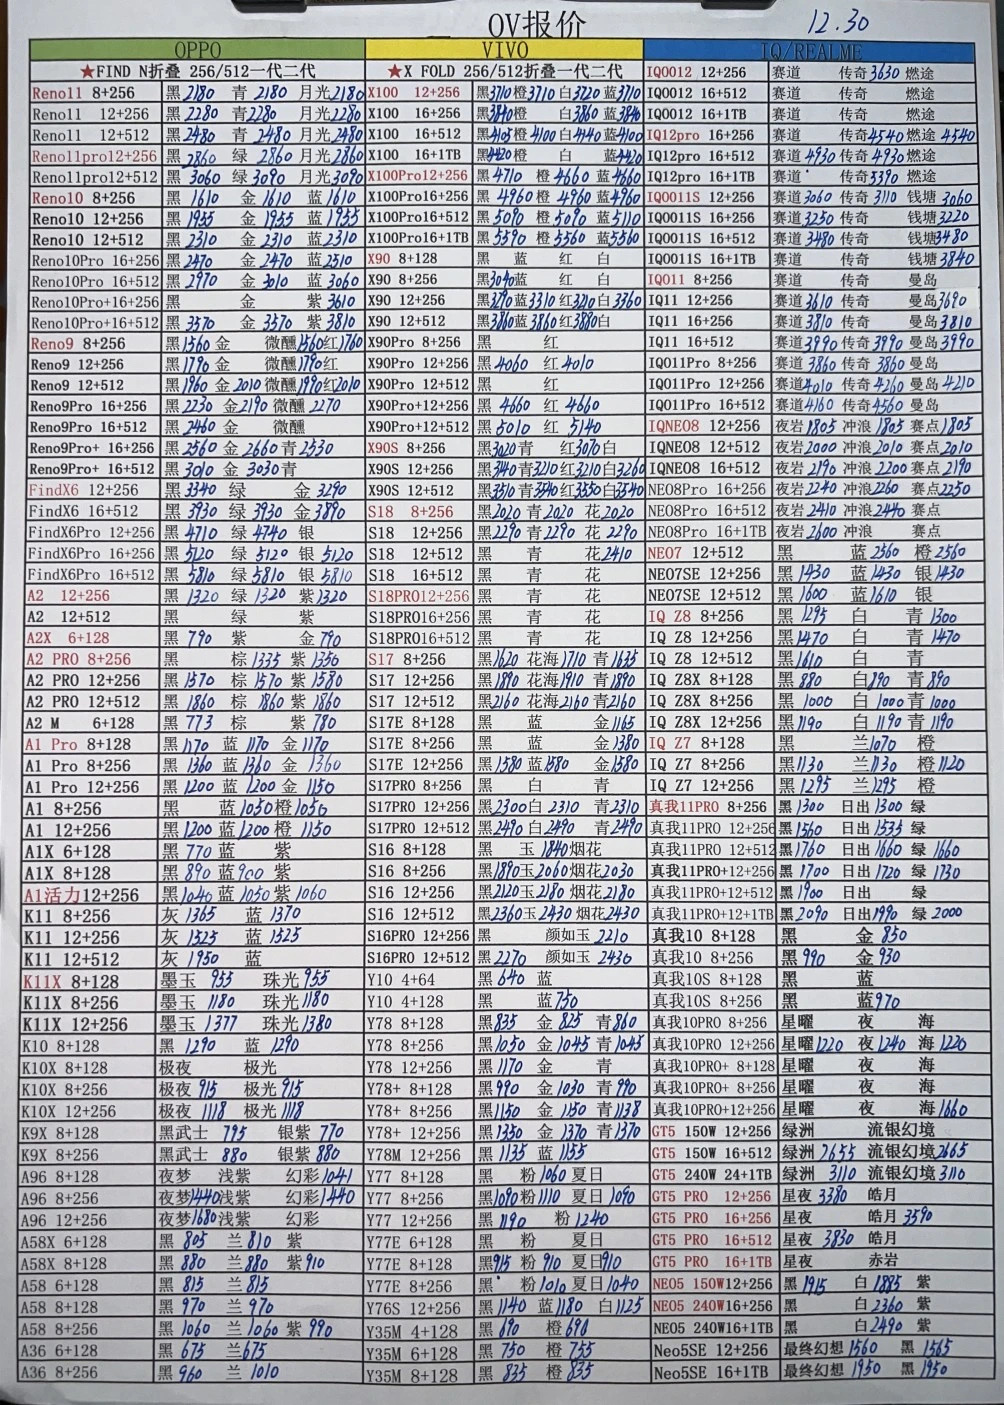 OV报价 12.30
OPPO VIVO IQ/REALME
★FIND N折叠 256/512一代二代 ★X FOLD 256/512折叠一代二代 IQOO12 12+256 赛道 传奇3630 燃途
Reno11 8+256 黑2180 青2180 月光2180 X100 12+256 黑3710橙3710白3720蓝3710 IQOO12 16+512 赛道 传奇 燃途
Reno11 12+256 黑2280 青2280 月光2280 X100 16+256 黑3840橙 白3860蓝3840 IQOO12 16+1TB 赛道 传奇 燃途
Reno11 12+512 黑2480 青2480 月光2480 X100 16+512 黑4105橙4100白4140蓝4100 IQ12pro 16+256 赛道 传奇4540燃途4540
Reno11pro12+256 黑2860 绿2860月光2860 X100 16+1TB 黑4420橙 白 蓝4420 IQ12pro 16+512 赛道4930传奇4930燃途
Reno11pro12+512 黑3060 绿3090月光3090 X100Pro12+256 黑4710 橙4660蓝4660 IQ12pro 16+1TB 赛道 传奇5390燃途
Reno10 8+256 黑1610 金1610 蓝1610 X100Pro16+256 黑4960橙4960蓝4960 IQOO11S 12+256 赛道3060传奇3110 钱塘3060
Reno10 12+256 黑1955 金1955 蓝1955 X100Pro16+512 黑5090橙5090蓝5110 IQOO11S 16+256 赛道3250传奇 钱塘3220
Reno10 12+512 黑2310 金2310 蓝2310 X100Pro16+1TB 黑5590橙5560蓝5560 IQOO11S 16+512 赛道3480传奇 钱塘3480
Reno10Pro 16+256 黑2470 金2470 蓝2510 X90 8+128 黑 蓝 红 白 IQOO11S 16+1TB 赛道 传奇 钱塘3840
Reno10Pro 16+512 黑2970 金3010 蓝3060 X90 8+256 黑3040蓝 红 白 IQO11 8+256 赛道 传奇 曼岛
Reno10Pro+16+256 黑 金 紫3610 X90 12+256 黑3290蓝3310红3210白3360 IQ11 12+256 赛道3610传奇 曼岛3690
Reno10Pro+16+512 黑3570 金3570 紫3810 X90 12+512 黑3860蓝3860红3880白 IQ11 16+256 赛道3810传奇 曼岛3810
Reno9 8+256 黑1560金 微醺1560红1760 X90Pro 8+256 黑 红 IQ11 16+512 赛道3990传奇3990曼岛3990
Reno9 12+256 黑1790金 微醺1790红 X90Pro 12+256 黑4060 红4010 IQOO11Pro 8+256 赛道3860传奇3860曼岛
Reno9 12+512 黑1960金2010微醺1990红2010 X90Pro 12+512 黑 红 IQOO11Pro 12+256 赛道4010传奇4260曼岛4210
Reno9Pro 16+256 黑2230 金2190微醺2270 X90Pro+12+256 黑4660 红4660 IQOO11Pro 16+512 赛道4160传奇4560曼岛
Reno9Pro 16+512 黑2460金 微醺 X90Pro+12+512 黑5010 红5140 IQNEO8 12+256 夜岩1805冲浪1805赛点1805
Reno9Pro+ 16+256 黑2560金2660青2530 X90S 8+256 黑3020青 红3070白 IQNEO8 12+512 夜岩2000冲浪2010赛点2010
Reno9Pro+ 16+512 黑3010金3030青 X90S 12+256 黑3140青3210红3210白3260 IQNEO8 16+512 夜岩2190冲浪2200赛点2190
FindX6 12+256 黑3340 绿 金3290 X90S 12+512 黑3510青3540红3550白3540 NEO8Pro 16+256 夜岩2240冲浪2260赛点2250
FindX6 16+512 黑3930 绿3930金3890 S18 8+256 黑2020青2020 花2020 NEO8Pro 16+512 夜岩2410冲浪2440赛点
FindX6Pro 12+256 黑4710 绿4740银 S18 12+256 黑2290青2290 花2290 NEO8Pro 16+1TB 夜岩2600冲浪 赛点
FindX6Pro 16+256 黑5120 绿5120银5120 S18 12+512 黑 青 花2410 NEO7 12+512 黑 蓝2560 橙2560
FindX6Pro 16+512 黑5810 绿5810银5810 S18 16+512 黑 青 花 NEO7SE 12+256 黑1430 蓝1430 银1430
A2 12+256 黑1320 绿1320紫1320 S18PRO12+256 黑 青 花 NEO7SE 12+512 黑1600 蓝1610 银
A2 12+512 黑 绿 紫 S18PRO16+256 黑 青 花 IQ Z8 8+256 黑1295 白 青1300
A2X 6+128 黑790 紫 金790 S18PRO16+512 黑 青 花 IQ Z8 12+256 黑1470 白 青1470
A2 PRO 8+256 黑 棕1335紫1350 S17 8+256 黑1620花海1710青1635 IQ Z8 12+512 黑1610 白 青
A2 PRO 12+256 黑1570 棕1570紫1580 S17 12+256 黑1890花海1910青1890 IQ Z8X 8+128 黑880 白890青890
A2 PRO 12+512 黑1860 棕1860紫1860 S17 12+512 黑2160花海2160青2160 IQ Z8X 8+256 黑1000 白1000青1000
A2 M 6+128 黑773 棕 紫780 S17E 8+128 黑 蓝 金1165 IQ Z8X 12+256 黑1190 白1190青1190
A1 Pro 8+128 黑1170 蓝1170 金1170 S17E 8+256 黑 蓝 金1380 IQ Z7 8+128 黑 兰1070 橙
A1 Pro 8+256 黑1360蓝1360 金1360 S17E 12+256 黑1580蓝1580 金1580 IQ Z7 8+256 黑1130 兰1130 橙1120
A1 Pro 12+256 黑1200蓝1200金1150 S17PRO 8+256 黑 白 青 IQ Z7 12+256 黑1295 兰1295 橙
A1 8+256 黑 蓝1050橙1050 S17PRO 12+256 黑2300白2310 青2310 真我11PRO 8+256 黑1300 日出1300绿
A1 12+256 黑1200蓝1200橙1150 S17PRO 12+512 黑2490白2490 青2490 真我11PRO 12+256 黑1560 日出1535绿
A1X 6+128 黑770蓝 紫 S16 8+128 黑 玉1840烟花 真我11PRO 12+512 黑1760 日出1660绿1660
A1X 8+128 黑890蓝900紫 S16 8+256 黑1890玉2060烟花2030 真我11PRO+12+256 黑1700 日出1720绿1730
A1活力12+256 黑1040蓝1050紫1060 S16 12+256 黑2120玉2180烟花2180 真我11PRO+12+512 黑1900 日出 绿
K11 8+256 灰1365 蓝1370 S16 12+512 黑2360玉2430烟花2430 真我11PRO+12+1TB 黑2090 日出1990绿2000
K11 12+256 灰1525 蓝1525 S16PRO 12+256 黑 颜如玉2210 真我10 8+128 黑 金850
K11 12+512 灰1950 蓝 S16PRO 12+512 黑2270 颜如玉2430 真我10 8+256 黑990 金930
K11X 8+128 墨玉955 珠光955 Y10 4+64 黑640 蓝 真我10S 8+128 黑 蓝
K11X 8+256 墨玉1180 珠光1180 Y10 4+128 黑 蓝750 真我10S 8+256 黑 蓝970
K11X 12+256 墨玉1377 珠光1380 Y78 8+128 黑835 金825 青860 真我10PRO 8+256 星曜 夜 海
K10 8+128 黑1290 蓝1290 Y78 8+256 黑1050 金1045青1045 真我10PRO 12+256 星曜1220 夜1240海1220
K10X 8+128 极夜 极光 Y78 12+256 黑1170 金 青 真我10PRO+ 8+128 星曜 夜 海
K10X 8+256 极夜915 极光915 Y78+ 8+128 黑990 金1030青990 真我10PRO+ 8+256 星曜 夜 海
K10X 12+256 极夜1118 极光1118 Y78+ 8+256 黑1150 金1150青1138 真我10PRO+12+256 星曜 夜 海1660
K9X 8+128 黑武士795 银紫770 Y78+ 12+256 黑1350 金1370青1370 GT5 150W 12+256 绿洲 流银幻境
K9X 8+256 黑武士880 银紫880 Y78M 12+256 黑1135 蓝1155 GT5 150W 16+512 绿洲2655 流银幻境2665
A96 8+128 夜梦 浅紫 幻彩1041 Y77 8+128 黑 粉1060夏日 GT5 240W 24+1TB 绿洲3110 流银幻境3110
A96 8+256 夜梦1440浅紫 幻彩1440 Y77 8+256 黑1090粉1110夏日1090 GT5 PRO 12+256 星夜3380 皓月
A96 12+256 夜梦1680浅紫 幻彩 Y77 12+256 黑1190 粉1240 GT5 PRO 16+256 星夜 皓月3590
A58X 6+128 黑805 兰810 紫 Y77E 6+128 黑 粉 夏日 GT5 PRO 16+512 星夜3830皓月
A58X 8+128 黑880 兰880 紫910 Y77E 8+128 黑915粉910夏日910 GT5 PRO 16+1TB 星夜 赤岩
A58 6+128 黑815 兰815 Y77E 8+256 黑 粉1010夏日1040 NEO5 150W12+256 黑1915 白1885紫
A58 8+128 黑970 兰970 Y76S 12+256 黑1140蓝1180 白1125 NEO5 240W16+256 黑 白2360紫
A58 8+256 黑1060 兰1060紫990 Y35M 4+128 黑690 橙690 NEO5 240W16+1TB 黑 白2490紫
A36 6+128 黑675 兰675 Y35M 6+128 黑750 橙755 Neo5SE 12+256 最终幻想1560 黑1565
A36 8+256 黑960 兰1010 Y35M 8+128 黑835 橙835 Neo5SE 16+1TB 最终幻想1950 黑1950